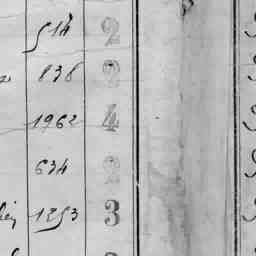 514 2
836 2
1962 4
634 2
1253 3